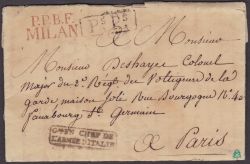 P.P.B.F.
MILAN
P.PS
A Monsieur
Monsieur Deshayes Colonel
Major du 2e Régt de Voltigeurs de la
garde maison Joli Rue Bourgogne No 40
fauxbourg St Germain
A Paris
CHEF DE
L'ARMEE D'ITALIE